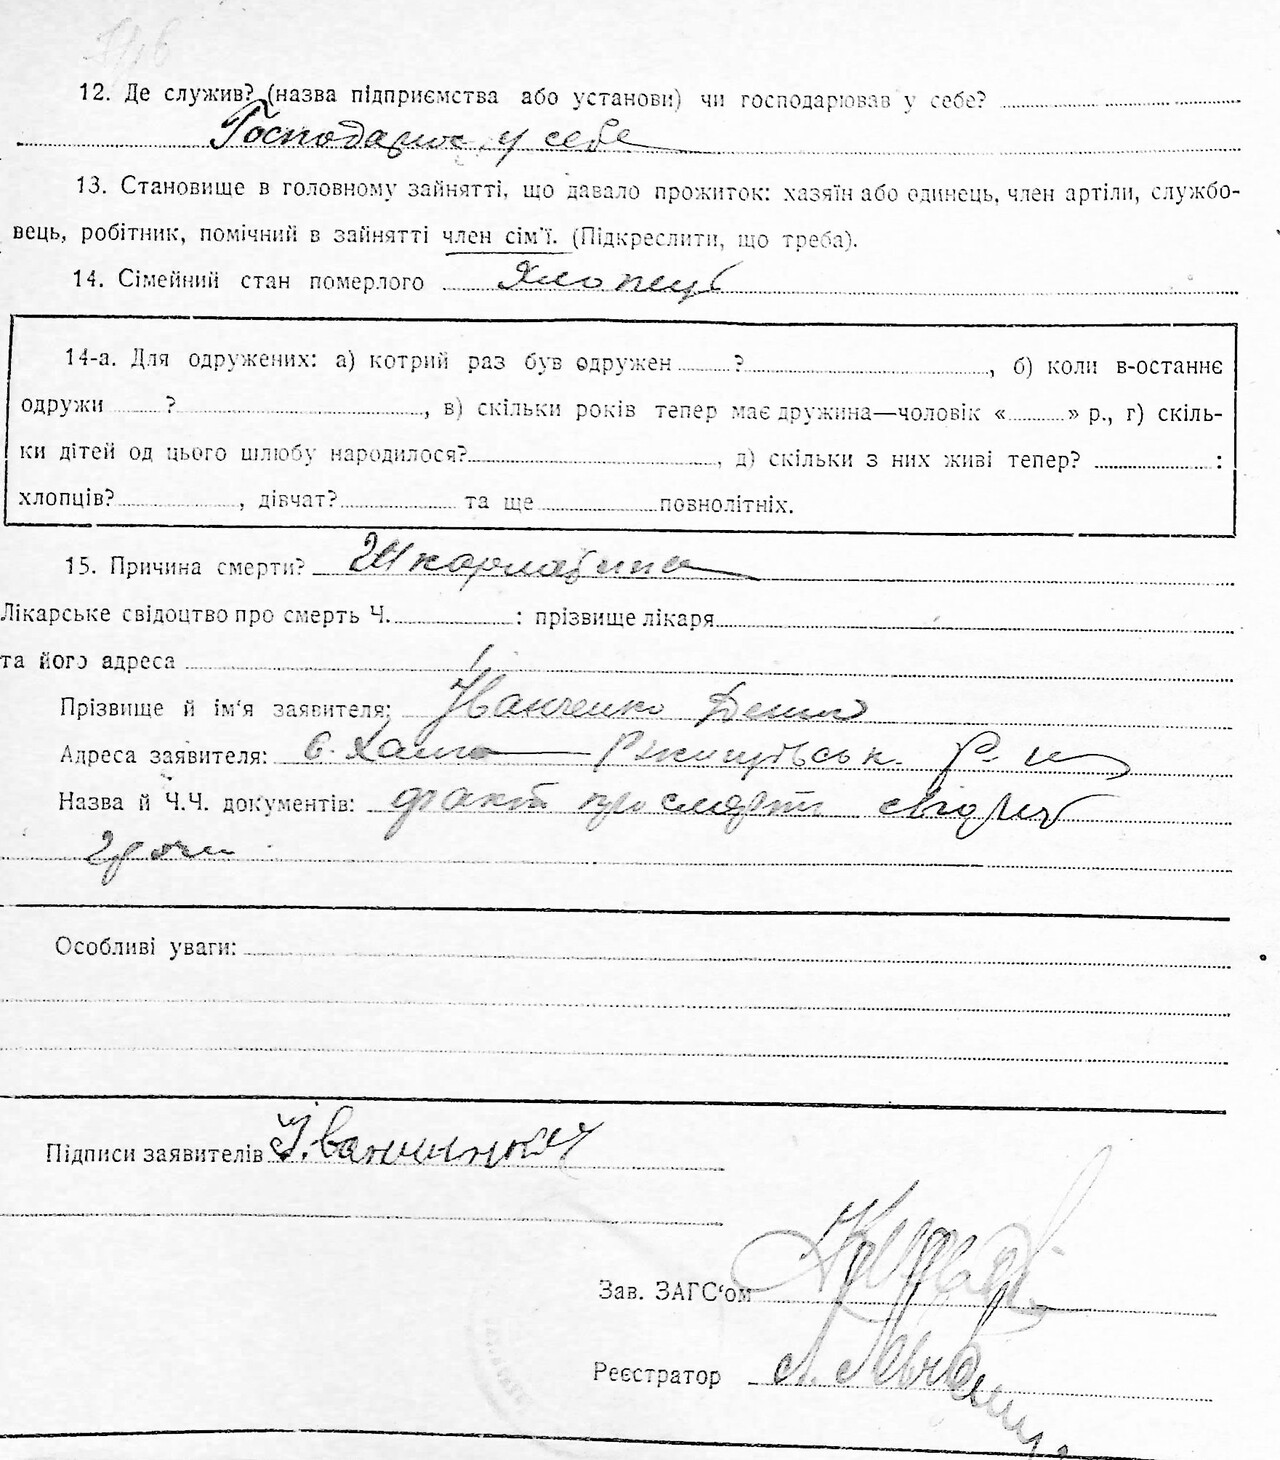 12. Де служив? (назва підприємства або установи) чи господарював у себе?
Господарює у себе
13. Становище в головному зайнятті, що давало прожиток: хазяїн або одинець, член артіли, службо-
вець, робітник, помічний в зайнятті член сім'ї. (Підкреслити, що треба).
14. Сімейний стан померлого Хлопець
14-а. Для одружених: а) котрий раз був одружен ?, б) коли в-останнє
одружи ?, в) скільки років тепер має дружина—чоловік « » р., г) скіль-
ки дітей од цього шлюбу народилося?, д) скільки з них живі тепер? :
хлопців?, дівчат? та ще повнолітніх.
15. Причина смерти? Шкарлатина
Лікарське свідоцтво про смерть Ч. : прізвище лікаря
та його адреса
Прізвище й ім'я заявителя: Іванченко
Адреса заявителя: с.
Назва й Ч.Ч. документів: факт про смерть
Особливі уваги:
Підписи заявителів
Зав. ЗАГС'ом
Реєстратор